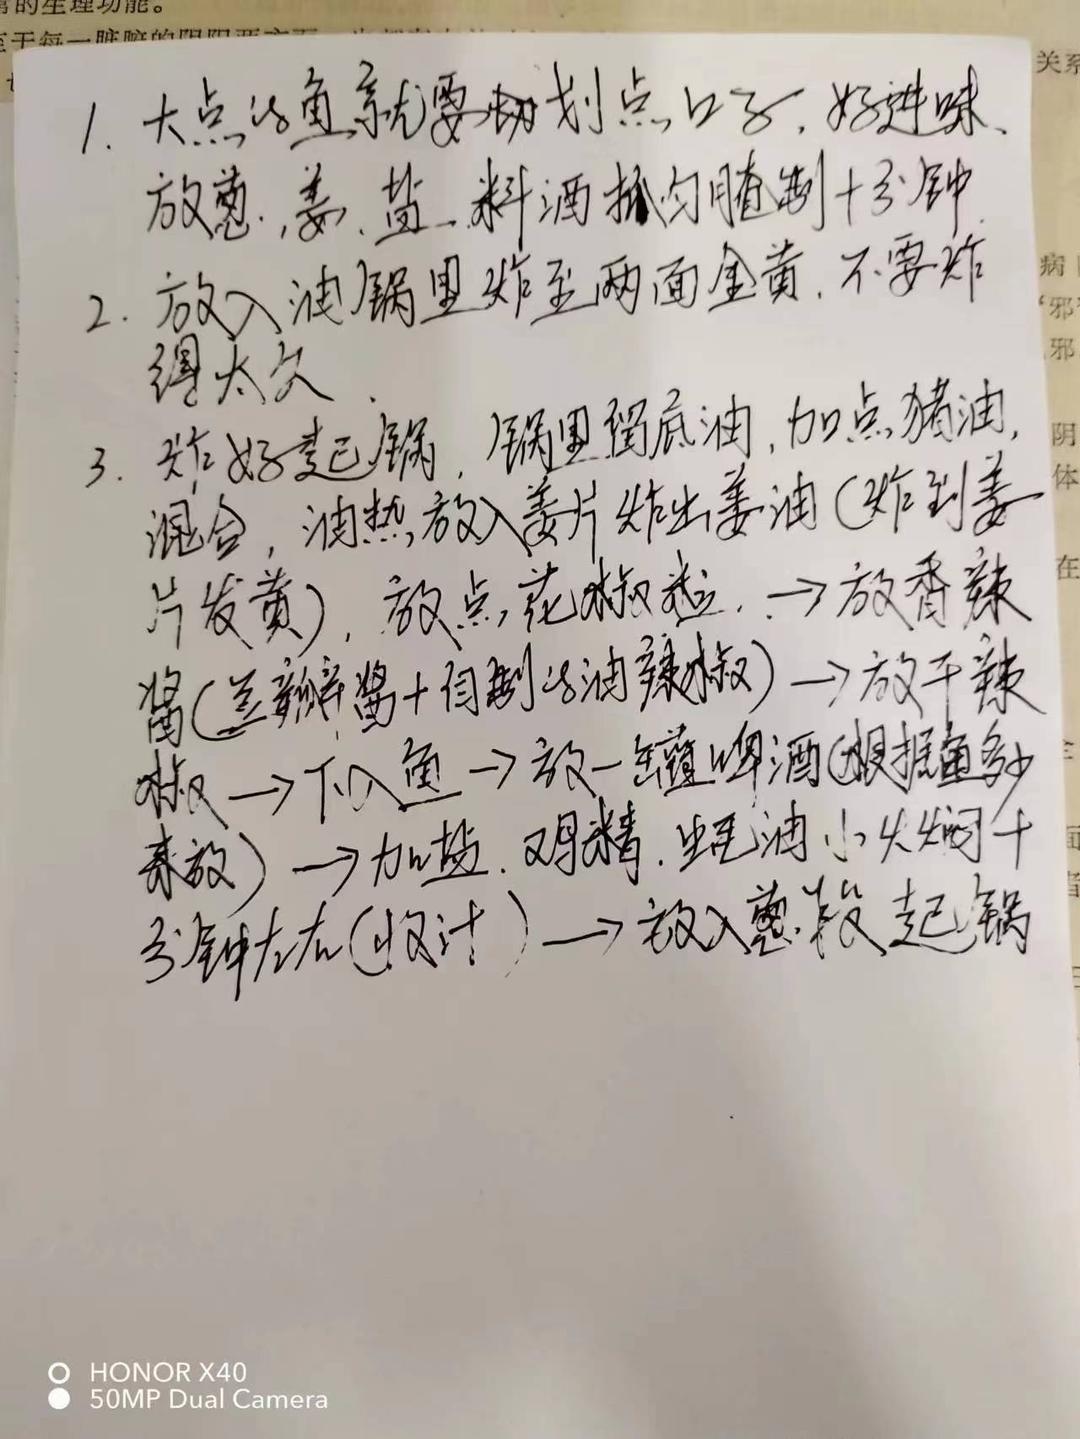 的生理功能。
关系
1. 大点的鱼就要切划点口子,好进味、
放葱、姜、盐、料酒抓匀腌制十分钟.
2. 放入油锅里炸至两面金黄.不要炸
得太久.
3. 炸好起锅,锅里留底油,加点猪油,
混合,油热,放入姜片炸出姜油(炸到姜
片发黄),放点花椒粒.→放香辣
酱(豆瓣酱+自制的油辣椒)→放干辣
椒→下入鱼→放一罐啤酒(根据鱼多少
来放)→加盐.鸡精.蚝油小火焖十
分钟左右(收汁)→放入葱段起锅
病
邪
邪
阴
体
在
HONOR X40
50MP Dual Camera